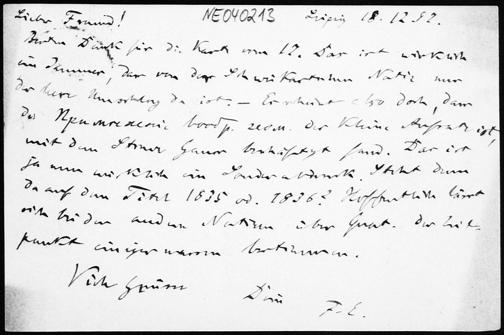 Lieber Freund! NE040213 Leipzig 18.12.92.
Besten Dank für die Karte vom 12. Das ist wirklich
ein Jammer, dass von der Schweikartschen Notiz nur
der leere Umschlag da ist. – Es scheint also doch, dass
das Примѣненіе вообр. геом. der kleine Aufsatz ist,
mit dem Gauss beschäftigt fand. Das ist
ja nun wirklich ein Sonderabdruck. Steht denn
da auf dem Titel 1835 od. 1836? Hoffentlich lässt
sich bei der andern Notizen über Zeit-
punkt einigermassen bestimmen.
Viele Grüsse
Dein
F. E.